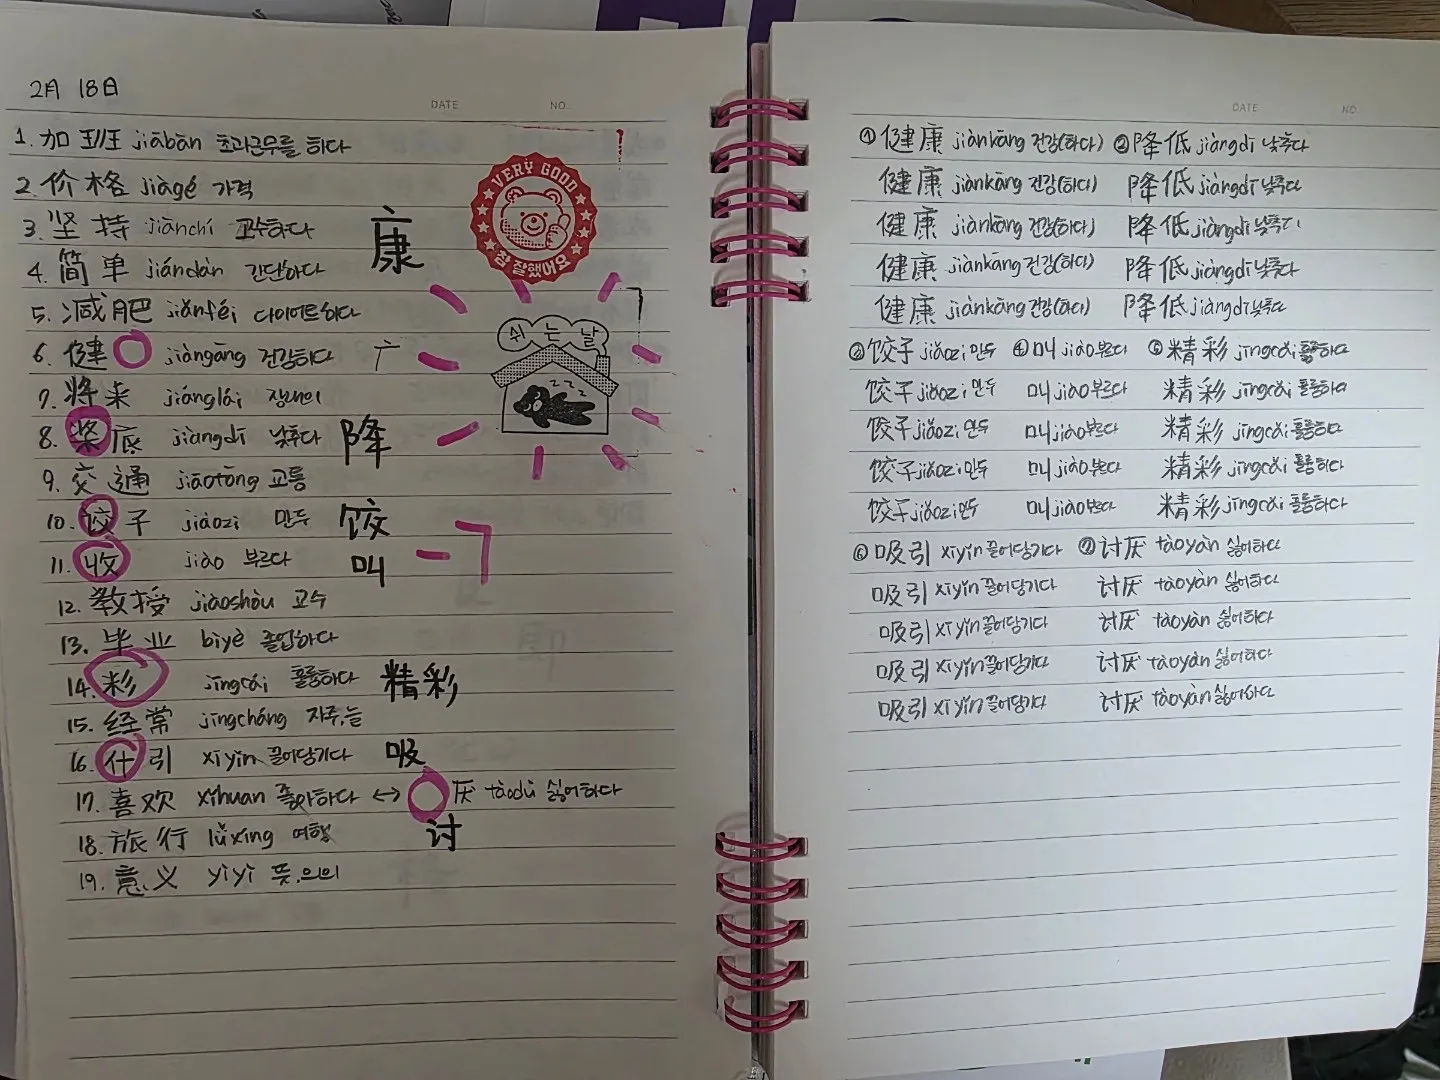 2月 18日
DATE NO.
1. 加班 jiābān 초과근무를 하다
2. 价格 jiàgé 가격
3. 坚持 jiānchí 고수하다
康
4. 简单 jiǎndān 간단하다
5. 减肥 jiǎnféi 다이어트하다
6. 健 jiàngāng 건강하다
7. 将来 jiānglái 장래의
8. 底 jiàngdī 낮추다 降
9. 交通 jiāotōng 교통
10. 饺子 jiǎozi 만두 饺
11. 收 jiào 부르다 叫
12. 教授 jiàoshòu 교수
13. 毕业 bìyè 졸업하다
14. 彩 jīngcǎi 훌륭하다 精彩
15. 经常 jīngcháng 자주, 늘
16. 什引 xīyǐn 끌어당기다 吸
17. 喜欢 xǐhuan 좋아하다 ↔ 厌 tǎodù 싫어하다
讨
18. 旅行 lǚxíng 여행
19. 意义 yìyì 뜻, 의의
VERY GOOD
참 잘했어요
쉬는날
zzz
DATE NO.
① 健康 jiànkāng 건강(하다) ② 降低 jiàngdī 낮추다
健康 jiànkāng 건강(하다) 降低 jiàngdī 낮추다
健康 jiànkāng 건강(하다) 降低 jiàngdī 낮추다
健康 jiànkāng 건강(하다) 降低 jiàngdī 낮추다
健康 jiànkāng 건강(하다) 降低 jiàngdī 낮추다
饺子 jiǎozi 만두 ④ 叫 jiào 부르다 ⑤ 精彩 jīngcǎi 훌륭하다
饺子 jiǎozi 만두 叫 jiào 부르다 精彩 jīngcǎi 훌륭하다
饺子 jiǎozi 만두 叫 jiào 부르다 精彩 jīngcǎi 훌륭하다
饺子 jiǎozi 만두 叫 jiào 부르다 精彩 jīngcǎi 훌륭하다
饺子 jiǎozi 만두 叫 jiào 부르다 精彩 jīngcǎi 훌륭하다
⑥ 吸引 xīyǐn 끌어당기다 ⑦ 讨厌 tǎoyàn 싫어하다
吸引 xīyǐn 끌어당기다 讨厌 tǎoyàn 싫어하다
吸引 xīyǐn 끌어당기다 讨厌 tǎoyàn 싫어하다
吸引 xīyǐn 끌어당기다 讨厌 tǎoyàn 싫어하다
吸引 xīyǐn 끌어당기다 讨厌 tǎoyàn 싫어하다